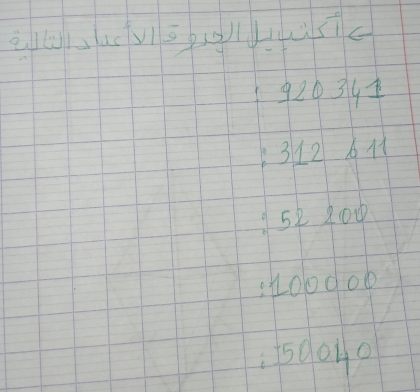 > أكتب بالحروف الأعداد التالية
: 920 341
: 312 611
: 52 200
: 100000
: 50040